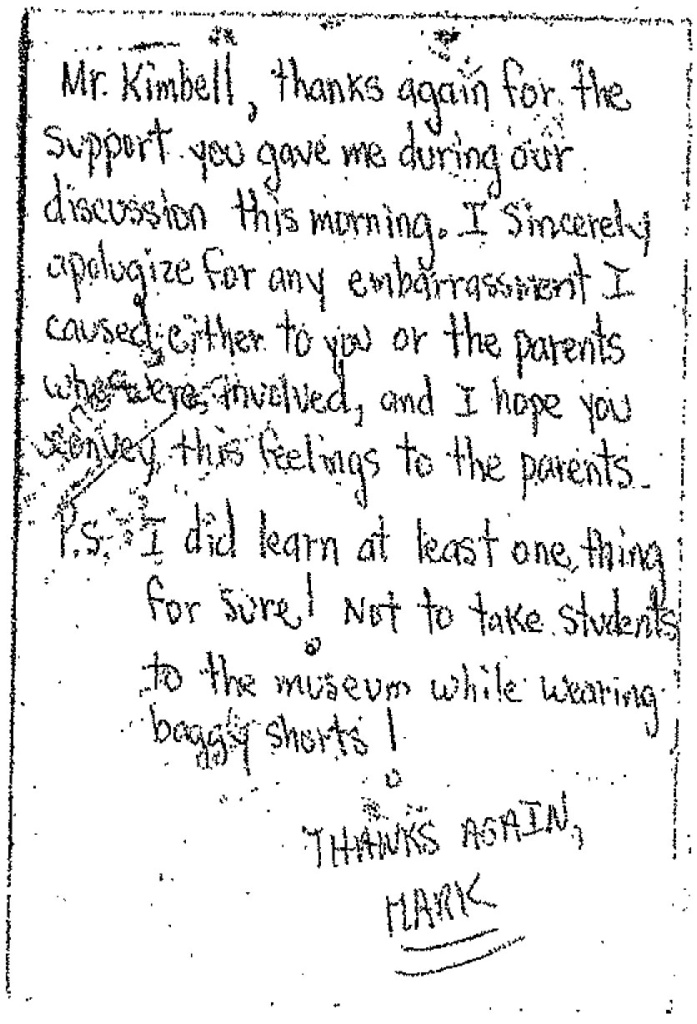 Mr. Kimbell, thanks again for the
support you gave me during our
discussion this morning. I sincerely
apologize for any embarrassment I
caused either to you or the parents
who were involved, and I hope you
convey this feelings to the parents.
P.S. I did learn at least one thing
for sure! Not to take students
to the museum while wearing
baggy shorts!
THANKS AGAIN,
MARK